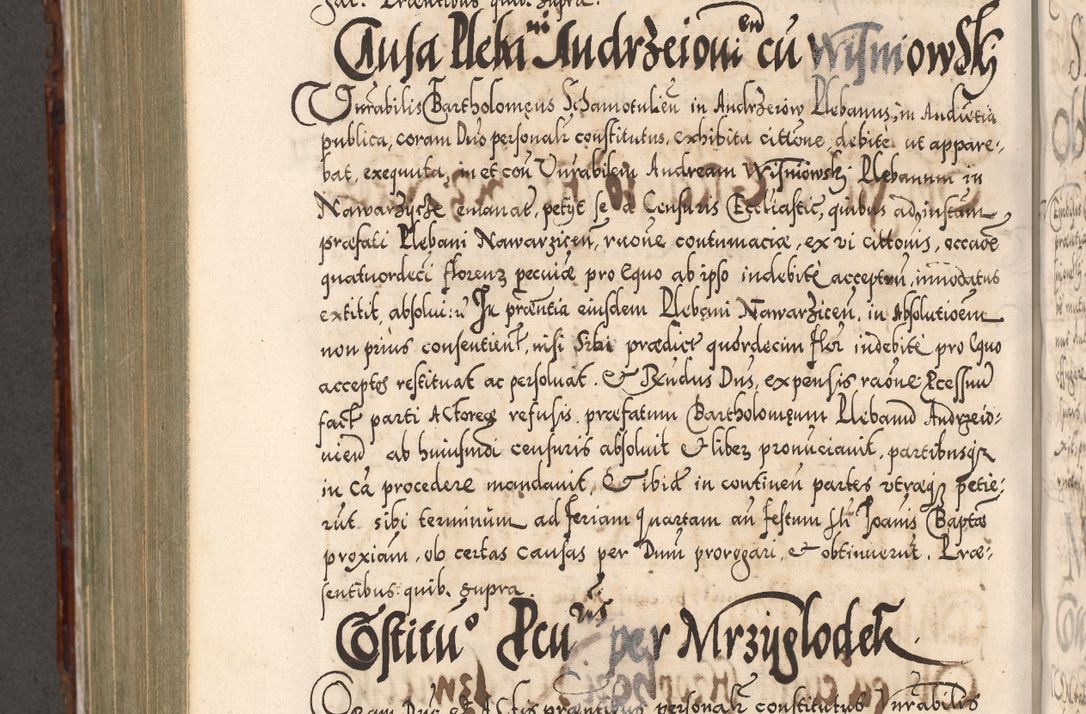 Causa Plebani Andrzeioviensis cu Wisniowskj
Venerabilis Bartholomęus Schamotulień in Andrzeiow Plebanus, in Audientia
publica, coram Dno personalr constitutus, exhibita cittone, debite ut appare-
bat, exequuta, in et con Venrabilem Andream Wisniowskj Plebanum in
Nawarzycze emanat, petyt se a Censuris Eccliastic, quibus ad instam
præfati Plebani Nawarziceń, raone contumaciæ, ex vi cittonis, occaoe
quatuordeci florenz pecuiæ pro Equo ab ipso indebite acceptru, innodatus
extitit, absolui: In præntia eiusdem Plebani Nawarzicen, in Absolutioem
non prius consentient, nisi sibi prædict quordecim flor indebite pro Equo
acceptos restituat ac persoluat. Et Rndus Dns, expensis raone Pcessuu
fact parti Actoreæ refusis præfatum Bartholomęum Plebanu Andrzeio-
uień ab huiusmdi censuris absoluit et liber pronuciauit, partibusq
in Ca procedere mandauit, Et ibid in continen partes vtræq petie-
rut sibi terminum ad feriam quartam an festum Sti Joanis Bapta
proxiam, ob certas causas per Dnm prorogari, et obtinuerut. Præ-
sentibus quib. supra.
Costitu Pcu per Mrzyglodek.
Coram Dno et Actis præntibus personalr constitutus Venrabilis